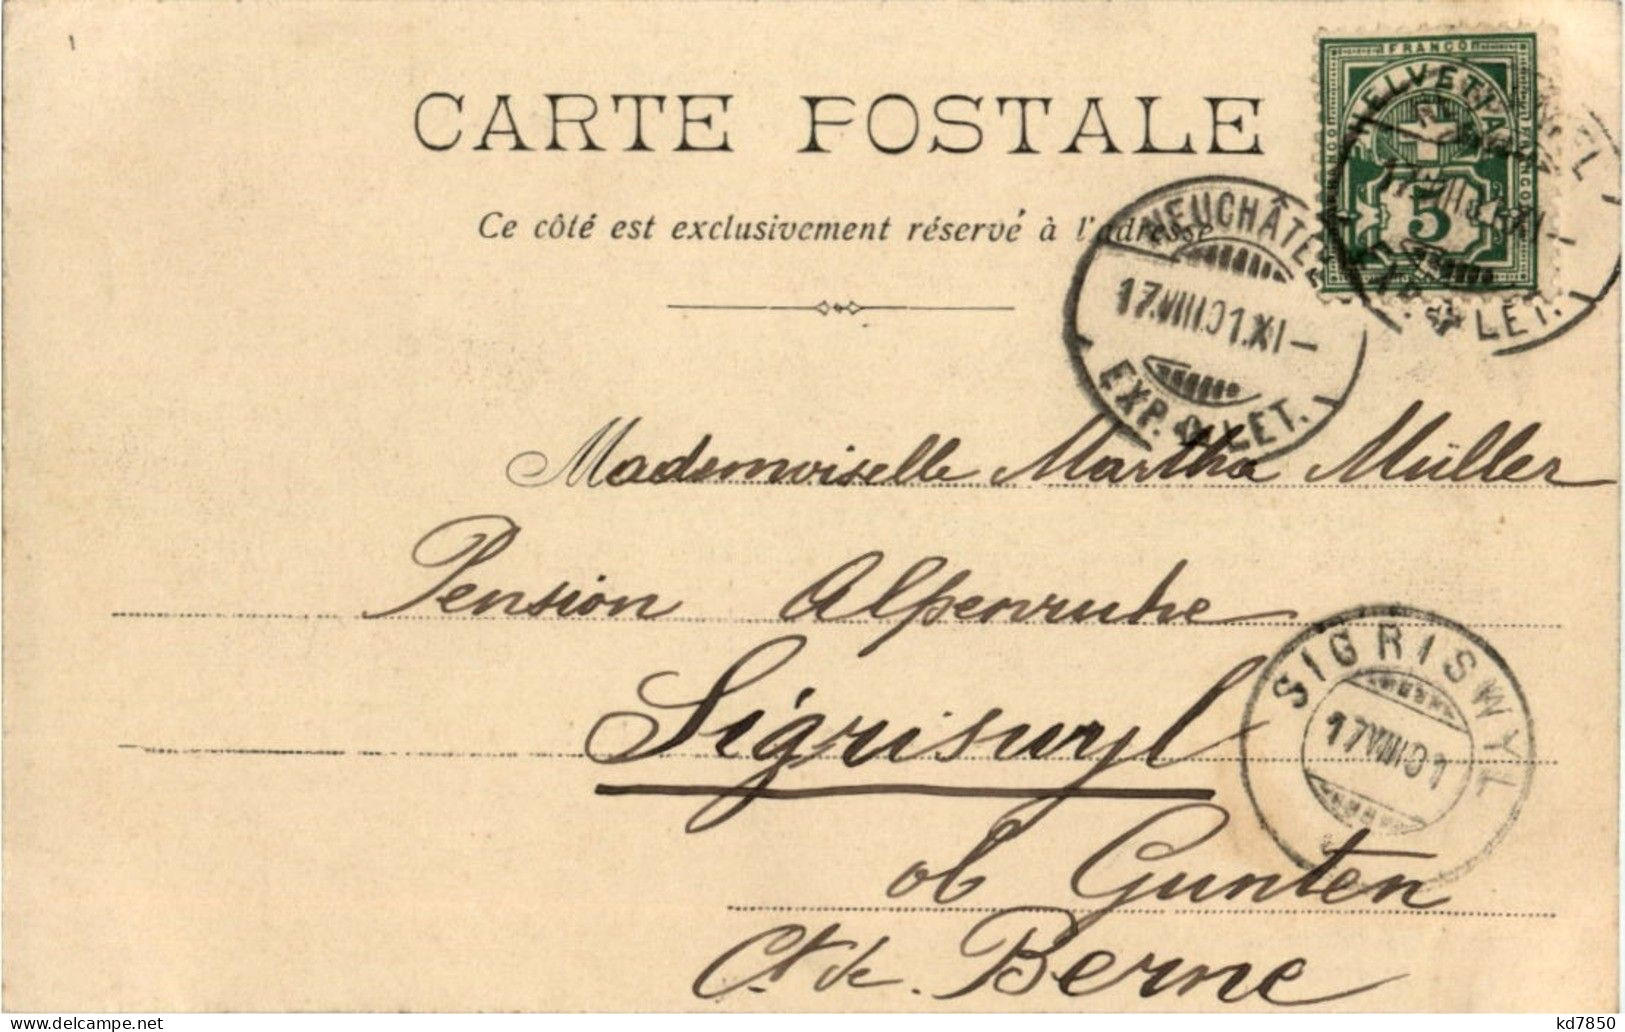 CARTE POSTALE
Ce côté est exclusivement réservé à l'adresse
FRANCO
HELVETIA
5
NEUCHÂTEL
17.VIII.01.XI-
EXP. LET.
Mademoiselle Martha Müller
Pension Alpenruhe
Sigriswyl
ob Gunten
Ct. de. Berne
SIGRISWYL
17.VIII.01
delcampe.net
kd7850